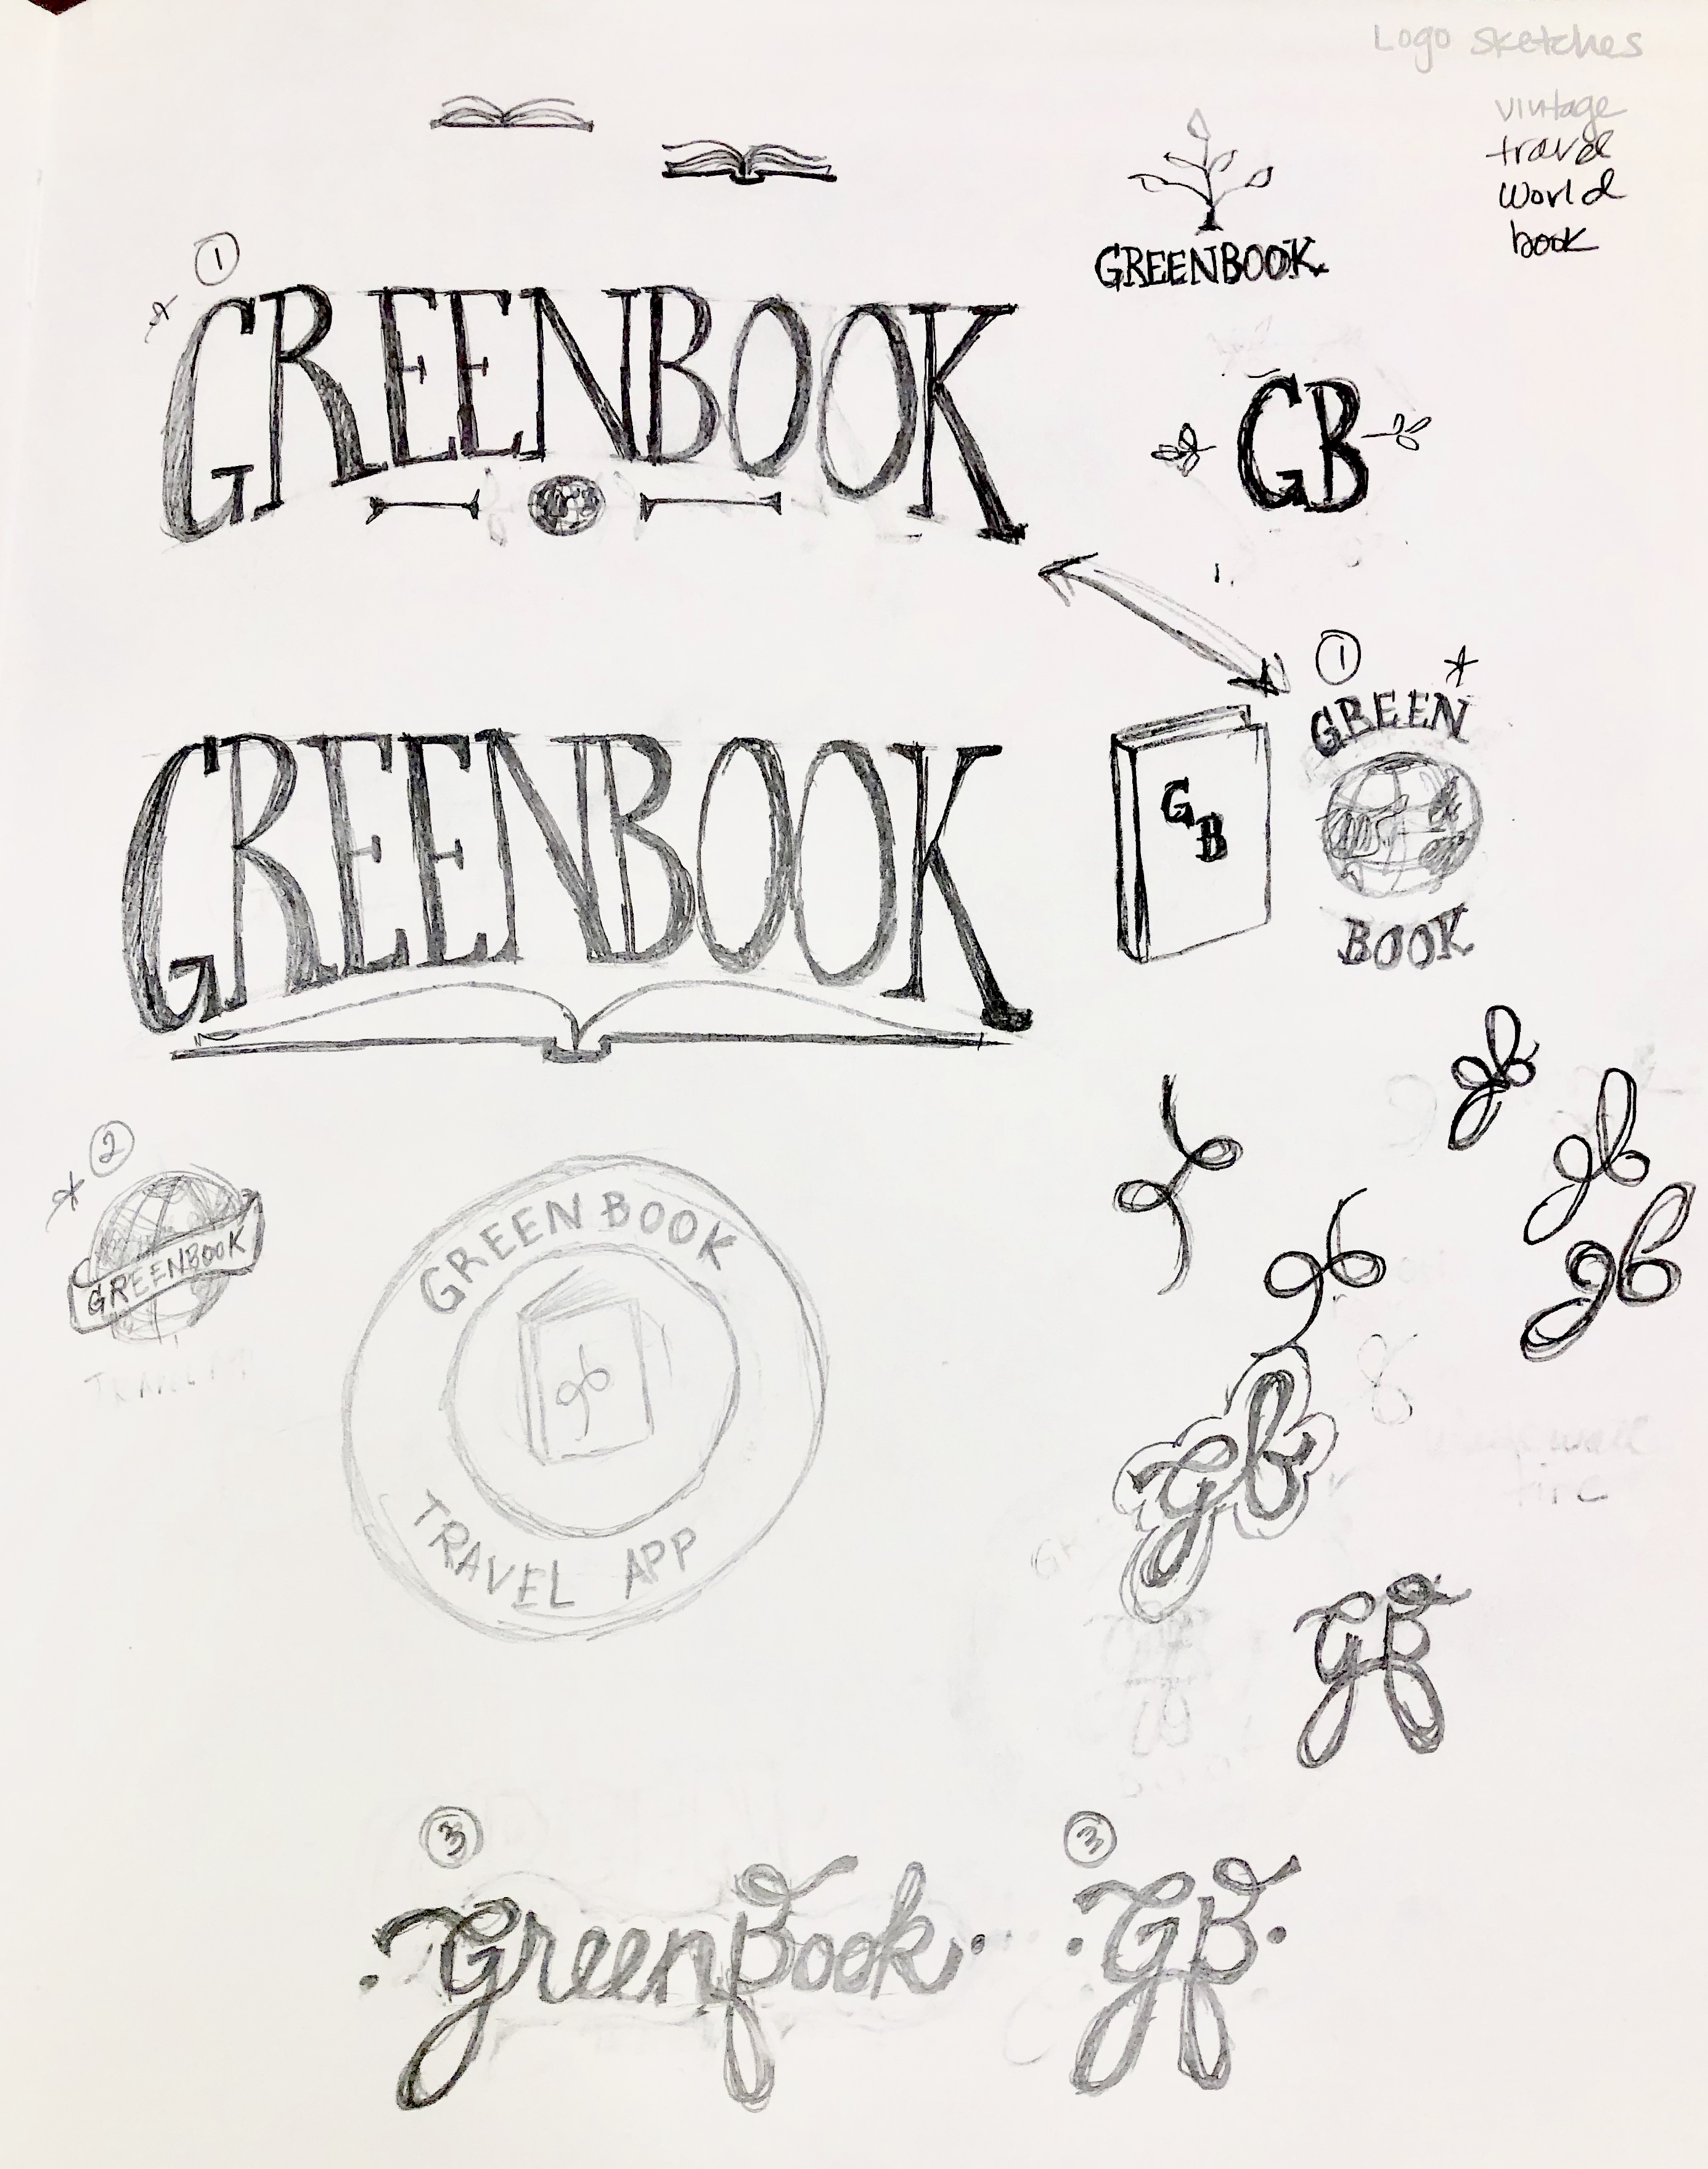 Logo sketches
vintage
travel
world
book
GREENBOOK
1
GREENBOOK
GB
1.
1
GREEN
BOOK
G
B
GREENBOOK
gb
gb
gb
2
GREENBOOK
GREENBOOK
gb
TRAVEL APP
gb
GB
3
GreenBook
3
GB